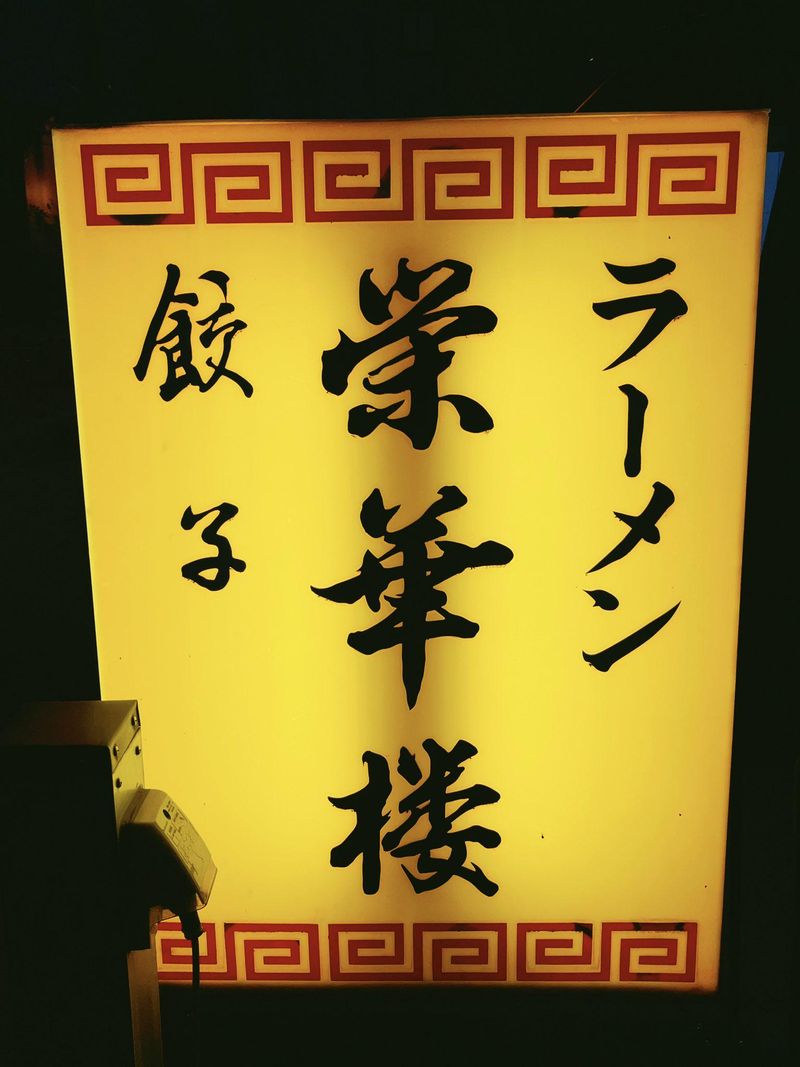 ラーメン
栄華楼
餃子